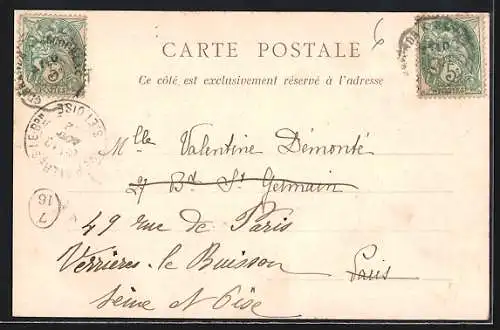 CARTE POSTALE
Ce côté est exclusivement réservé à l'adresse
Mlle Valentine Démonté
27 Bd St Germain
49 rue de Paris
Verrières-le Buisson
Paris
Seine et Oise
7
16